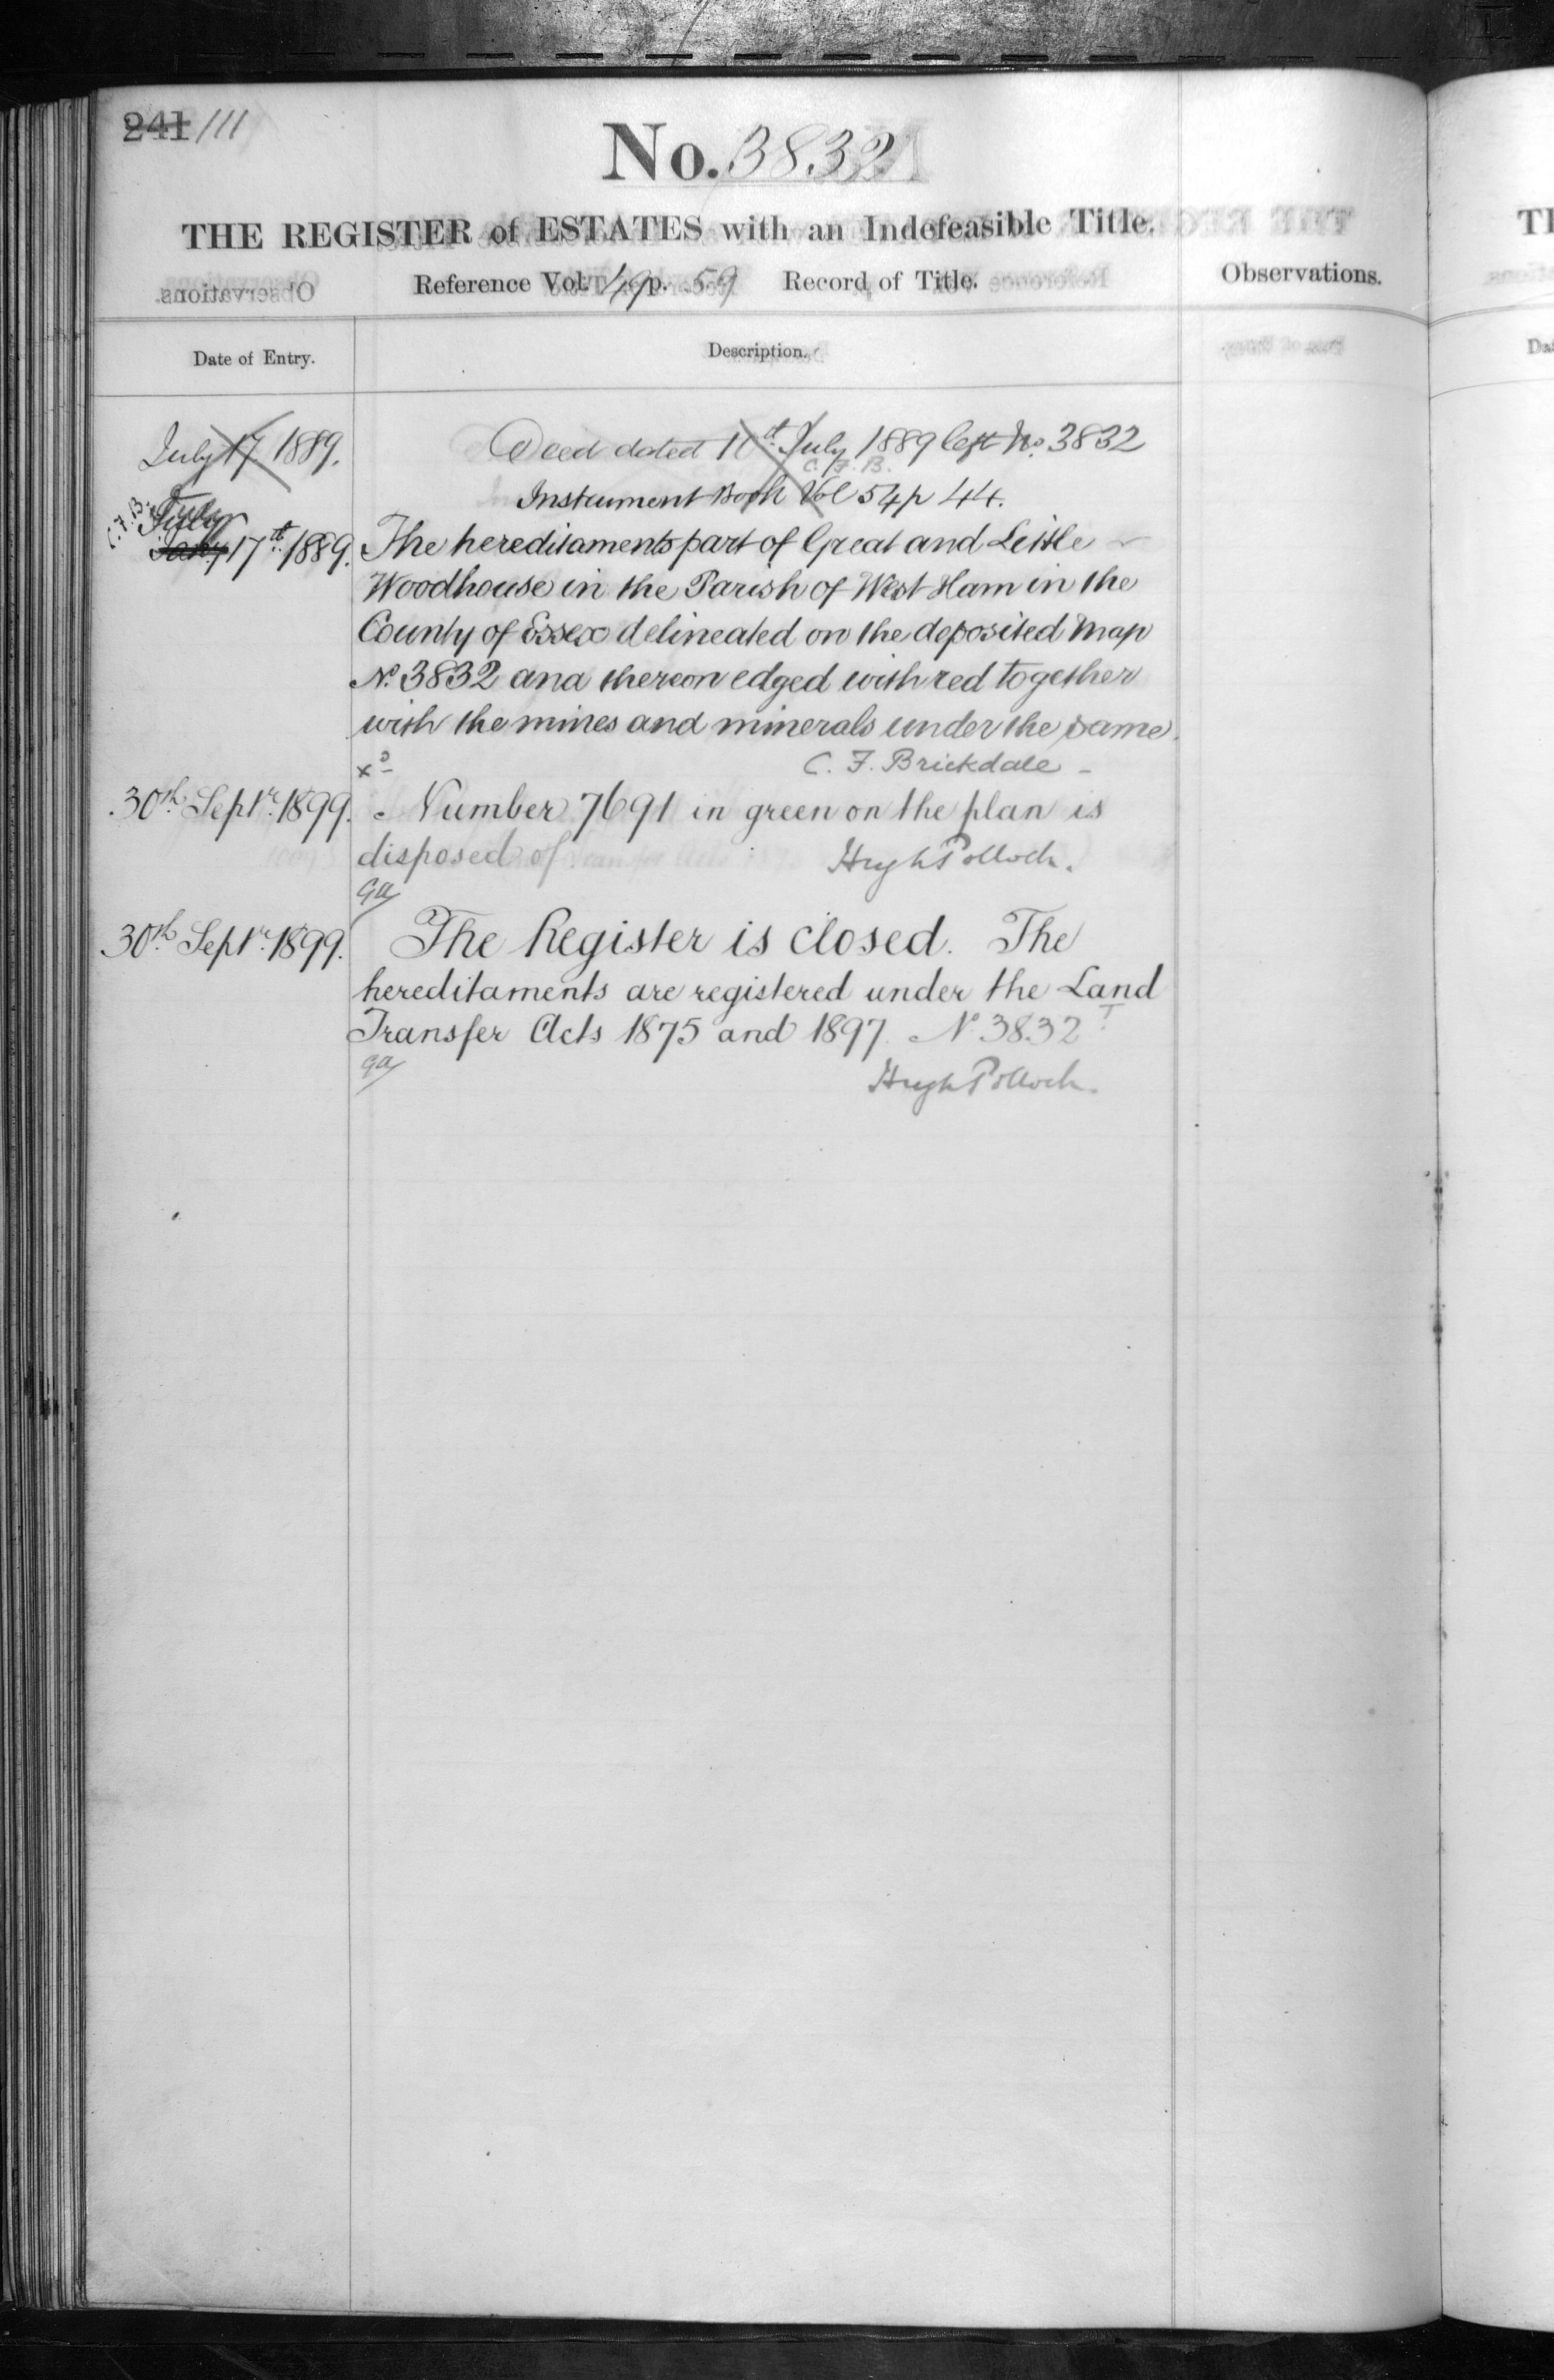 241 111
No. 3832
THE REGISTER of ESTATES with an Indefeasible Title.
Reference Vol. 49 p. 59 Record of Title.
Observations.
Date of Entry.
Description.
July 17 1889. Deed dated 11th July 1889 left No. 3832
C. F. B.
Instrument Book Vol 54 p 44.
C. F. B. July
17th 1889. The hereditaments part of Great and Little
Woodhouse in the Parish of West Ham in the
County of Essex delineated on the deposited Map
No. 3832 and thereon edged with red together
with the mines and minerals under the same.
C. F. Brickdale
30th Septr. 1899. Number 7691 in green on the plan is
disposed of Hugh Pollock.
GA
30th Septr. 1899. The Register is closed. The
hereditaments are registered under the Land
Transfer Acts 1875 and 1897. No 3832 T
GA
Hugh Pollock.